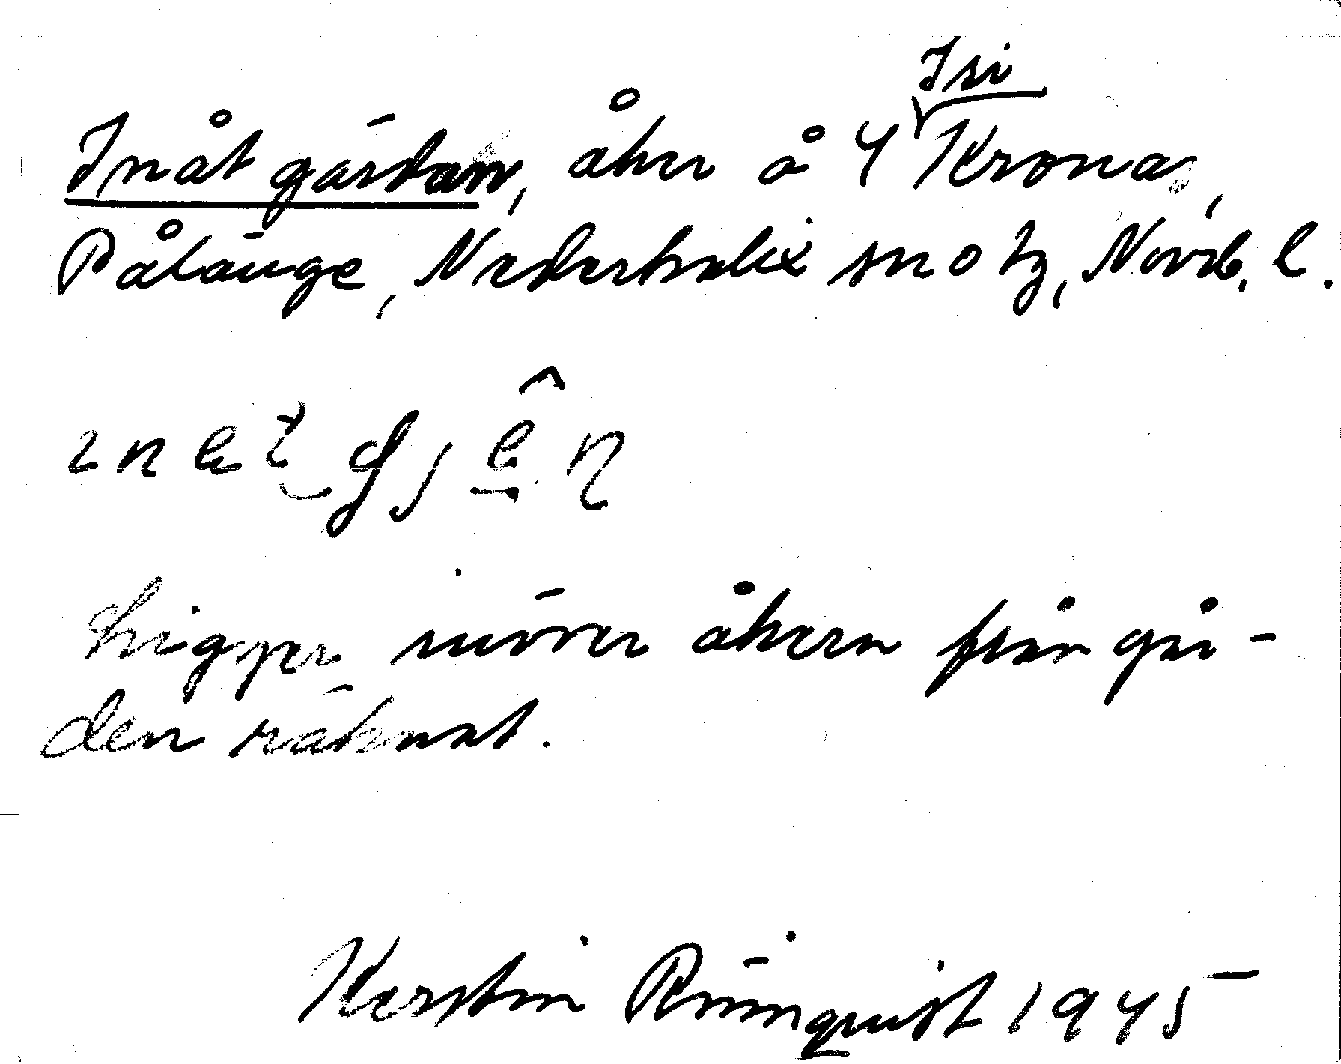 Isi
Inåt gärdan, åker å 4 Krona,
Pålänge, Nederkalix sn o tg, Norrb. l.
Ligger inöver åkern från går-
den räknat.
Kerstin Rönnquist 1945